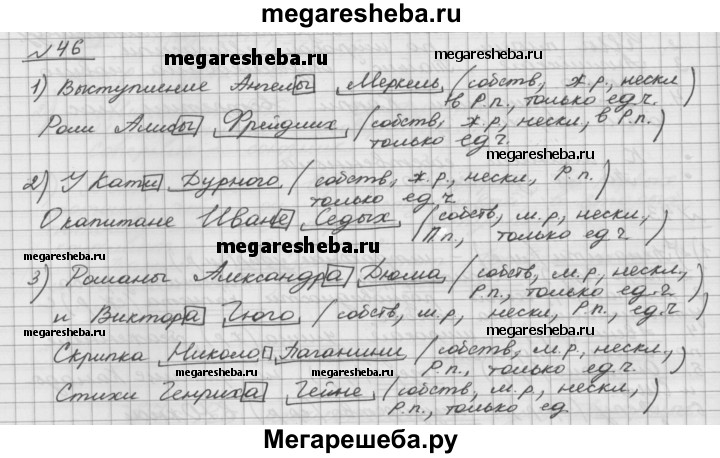 megaresheba.ru
№46
megaresheba.ru
megaresheba.ru
1) Выступление Ангелы Меркель (собств, ж.р, нескл
в Р.п., только ед.ч.)
Роли Алисы Фрейдлих (собств, ж.р, нескл, в Р.п.
только ед.ч)
megaresheba.ru
2) У Кати Дурного (собств, ж.р, нескл, Р.п.)
только ед.ч
О капитане Иване Седых (собств, м.р, нескл,
П.п., только ед.ч.)
megaresheba.ru
3) Романы Александра Дюма (собств, м.р, нескл.,
Р.п., только ед.ч.)
megaresheba.ru
и Виктора Гюго (собств, м.р, нескл, Р.п., ед.ч)
megaresheba.ru
Скрипка Николо Паганини (собств, м.р, нескл.,
Р.п., только ед.ч.)
megaresheba.ru
megaresheba.ru
Стихи Генриха Гейне (собств, м.р, нескл.,
Р.п., только ед.)
Мегарешеба.ру